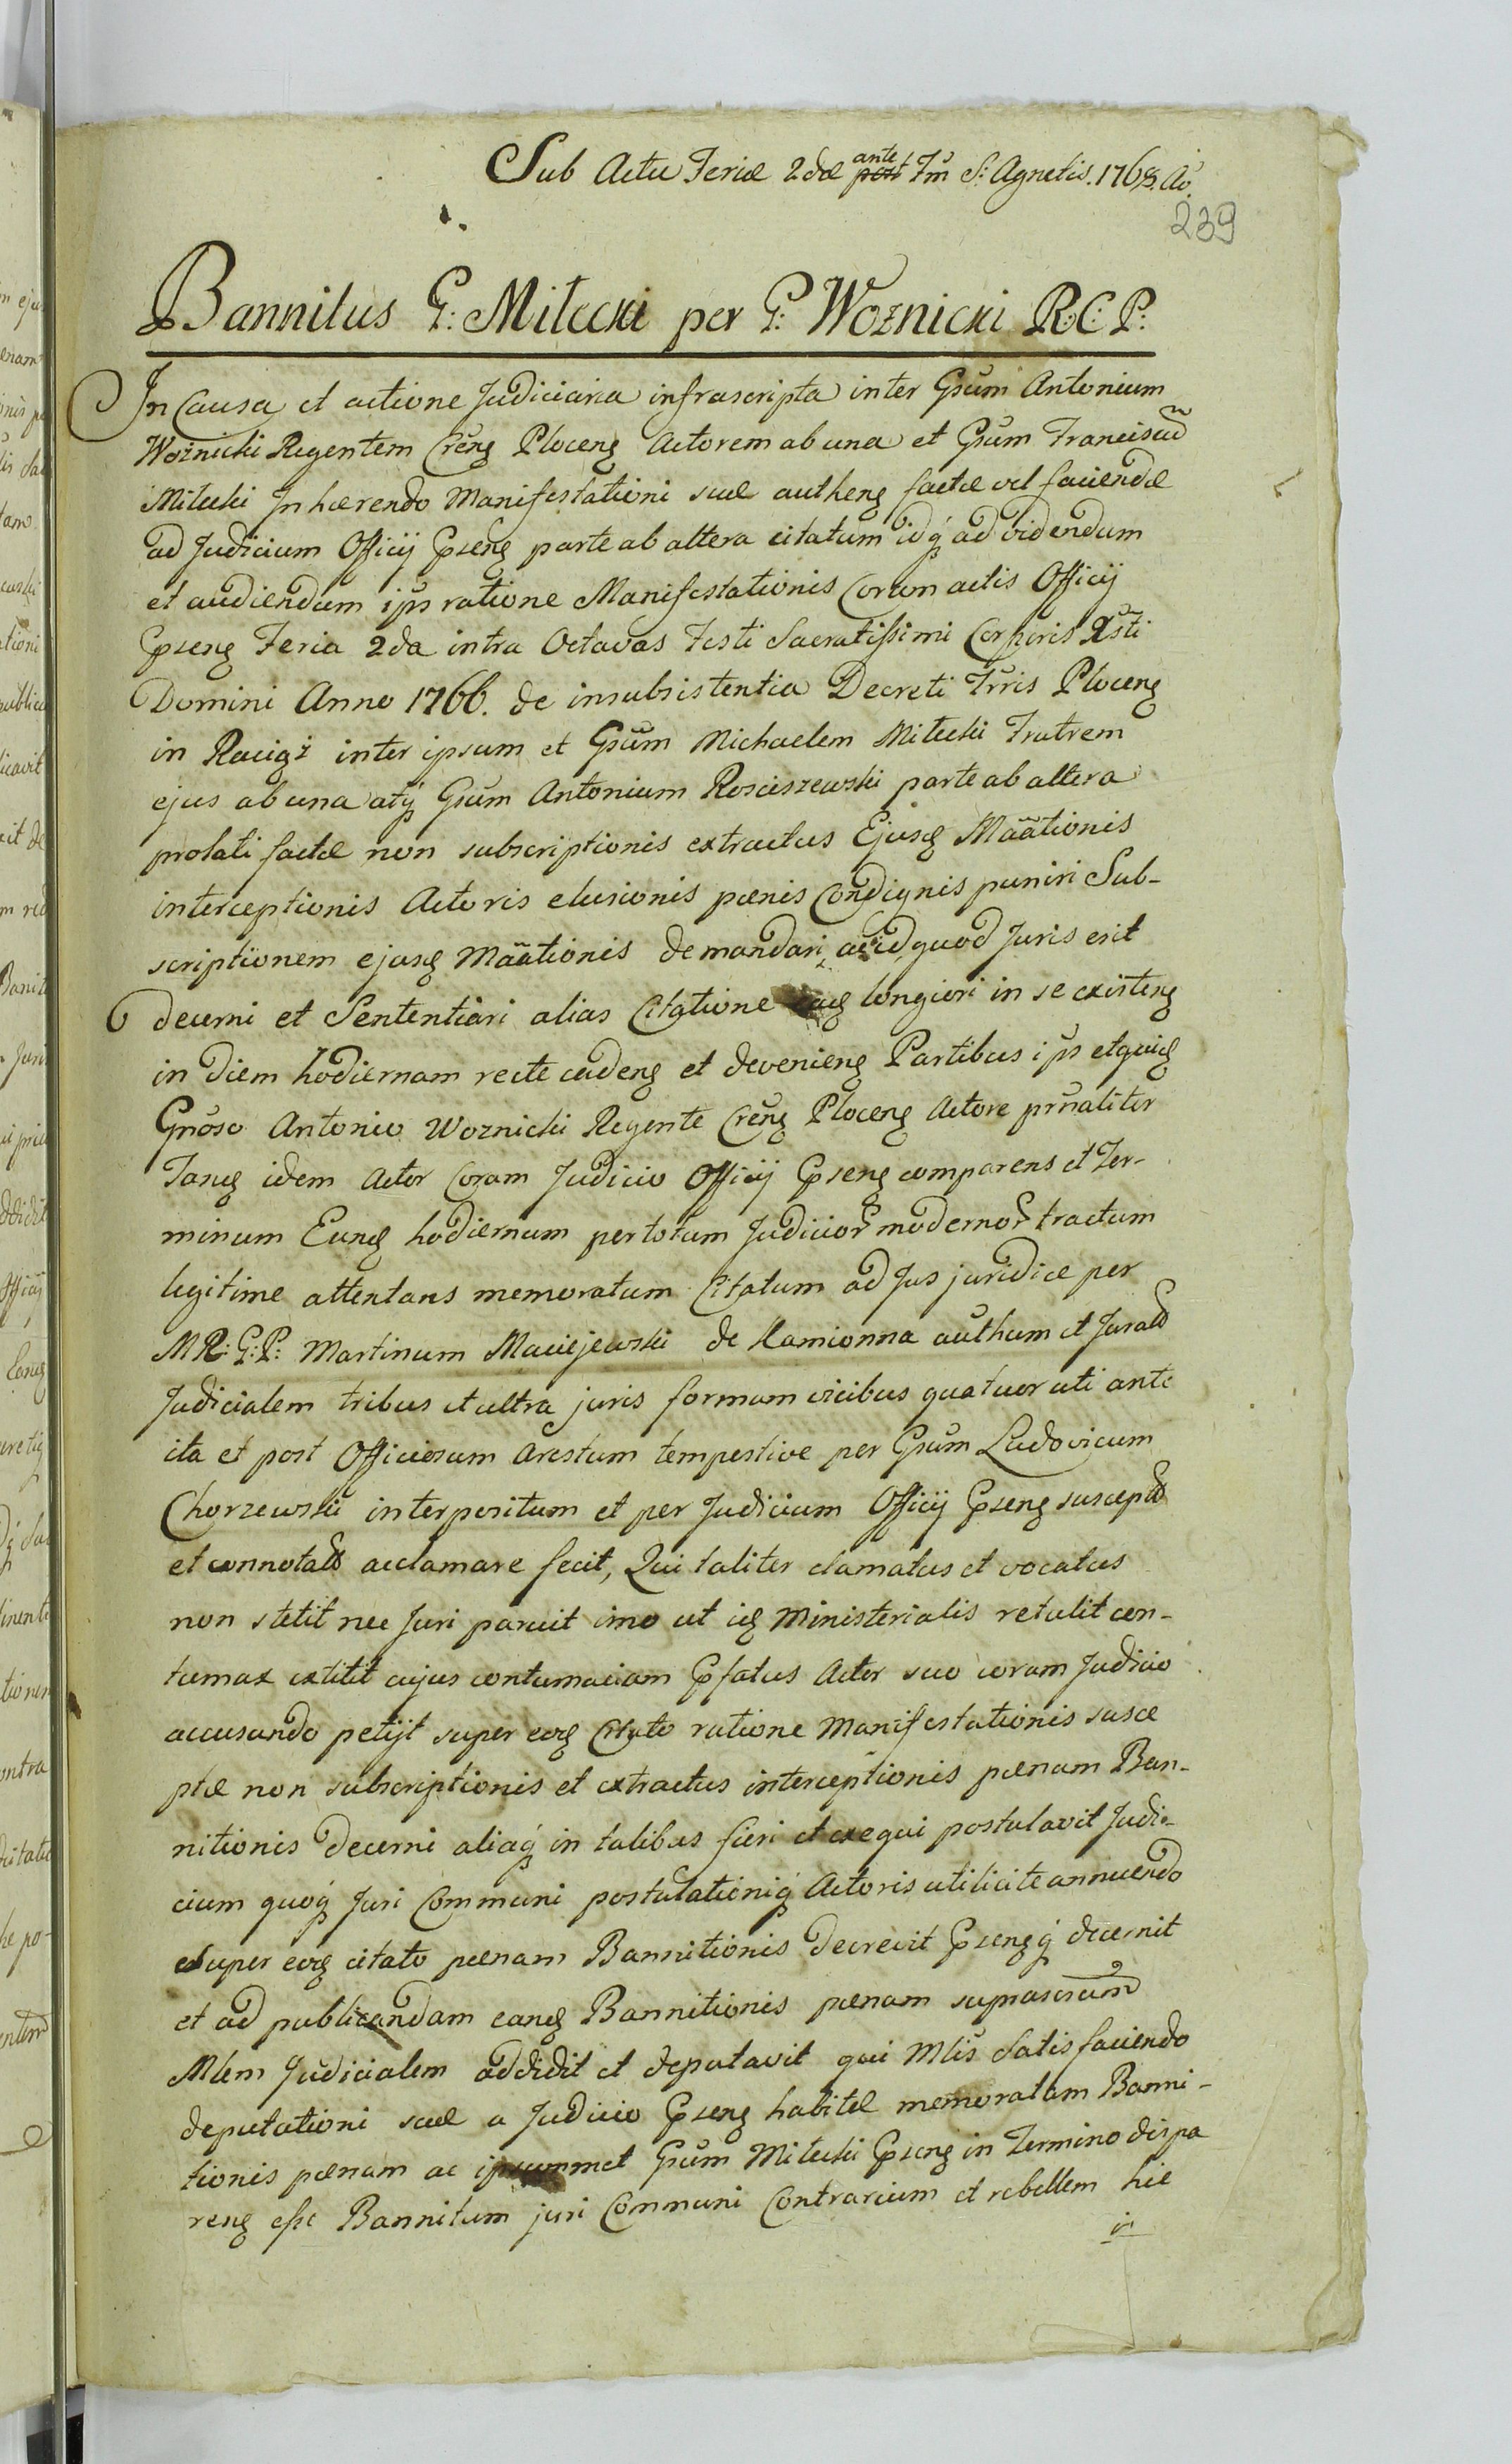 Sub Actu Feriæ 2dæ ante post Fm̃ S: Agnetis. 1768. Ao.
239
Bannitus G: Miłecki per G: Woznicki R.C.P.
In Causa et actione Judiciaria infrascripta inter Gsum Antonium
Woźnicki Regentem Creñg Ploceng Actorem ab una et Gsum Franciscum̃
Miłecki Inhærendo Manifestationi suæ autheng factæ vel faciendæ
ad Judicium Officij Gpseng parte ab altera citatum idq́ ad videndum
et audiendum ips ratione Manifestationis Coram actis Officij
Gpseng Feria 2da intra Octavas Festi Sacratissimi Corporis Xsti
Domini Anno 1766. de insubsistentia Decreti Trris Ploceng
in Raciąż inter ipsum et Gsum Michaelem Miłecki Fratrem
ejus ab una atq́ Gsum Antonium Rosciszewski parte ab altera
prolati factæ non subscriptionis extractus Ejusq Maãtionis
interceptionis Actoris elusionis pænis Condignis puniri Sub-
scriptionem ejusq Maãtionis demandari, ac id quod Juris erit
decerni et Sententiari alias Citatione longiori in se existeng
in diem hodiernam recte cadeng et devenieng Partibus ips etquiq
Gnoso Antonio Woznicki Regente Creñg Ploceng Actore prñaliter
Tanq idem Actor Coram Judicio Officij Gpseng comparens et Ter-
minum Eunq hodiernum per totum Judicior modernor tractum
legitime attentans memoratum Citatum ad Jus juridice per
MR: G: P: Martinum Maciejewski de Kamionna authum et Juratd
Judicialem tribus et ultra juris formam vicibus quatuor uti ante
ita et post Officiosum Arestum tempestive per Gsum Ludovicum
Chorzewski interpositum et per Judicium Officij Gpseng susceptd
et connotatd acclamare fecit, Qui taliter clamatus et vocatus
non stetit nec Juri paruit imo ut iq Ministerialis retulit con-
tumax extitit cujus contumaciam Gpfatus Actor suo coram Judicio
accusando petijt super eoq Citato ratione Manifestationis susce
ptæ non subscriptionis et extractus interceptionis pænam Ban-
nitionis decerni aliaq́ in talibus fieri et exequi postulavit Judi-
cium quoq́ Juri Communi postulationiq́ Actoris utilicite annuendo
super eoq citato pænam Bannitionis decrevit Gpsengq́ decernit
et ad publicandam eanq Bannitionis pænam suprascrum̃
Mlem Judicialem addidit et deputavit qui Mlis satisfaciendo
deputationi suæ a Judicio Gpseng habitæ memoratam Banni-
tionis pænam ac ipsummet Gsum Miłecki Gpseng in Termino dispa
reng esse Bannitum juri Communi Contrarium et rebellem hic
in